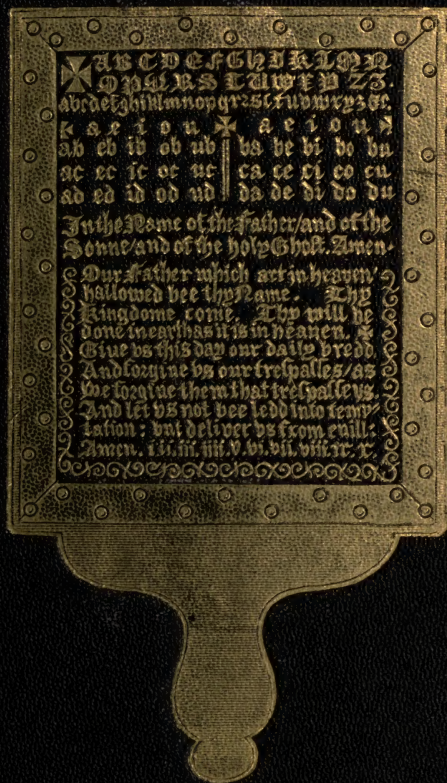 ✠ A B C D E F G H I K L M N
O P Q R S T U W X Y Z 3.
abcdefghiklmnopqrzsſtuvwxyz &c.
a e i o u ✠ a e i o u
ab eb ib ob ub ba be bi bo bu
ac ec ic oc uc ca ce ci co cu
ad ed id od ud da de di do du
In the Name of the Father/and of the
Sonne/and of the holy Ghoſt. Amen.
Our Father which art in heaven/
hallowed bee thy Name. Thy
Kingdome come. Thy will be
done in earth as it is in heauen. ✠
Giue vs this day our daily bredd
And forgiue vs our treſpaſſes/as
we forgiue them that treſpaſſe vs.
And let vs not bee ledd into temp-
tation: but deliver vs from euill:
Amen. i.ii.iii.iiii.v.vi.vii.viii.ix.x.